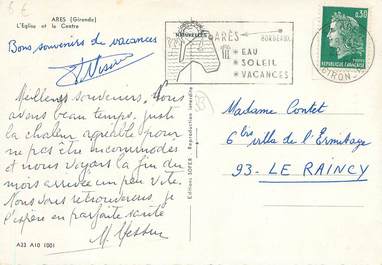 6 €
ARES (Gironde)
L'Eglise et le Centre
Bons souvenirs de vacances
Meilleurs souvenirs. Nous
avons beau temps, juste
la chaleur agréable pour
ne pas être incommodés
et nous voyons la fin du
mois arrivée un peu vite.
Nous vous retrouverons je
l'espère en parfaite santé
M.
A23 A10 1001
Editions SOFER - Reproduction interdite
33
NATURELLES
ARÈS
BORDEAUX
* EAU
* SOLEIL
* VACANCES
GIRON
0,30
REPUBLIQUE FRANÇAISE
POSTES
Madame Contet
6 bis villa de l'Ermitage
93 - LE RAINCY